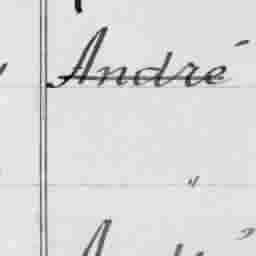 André
"